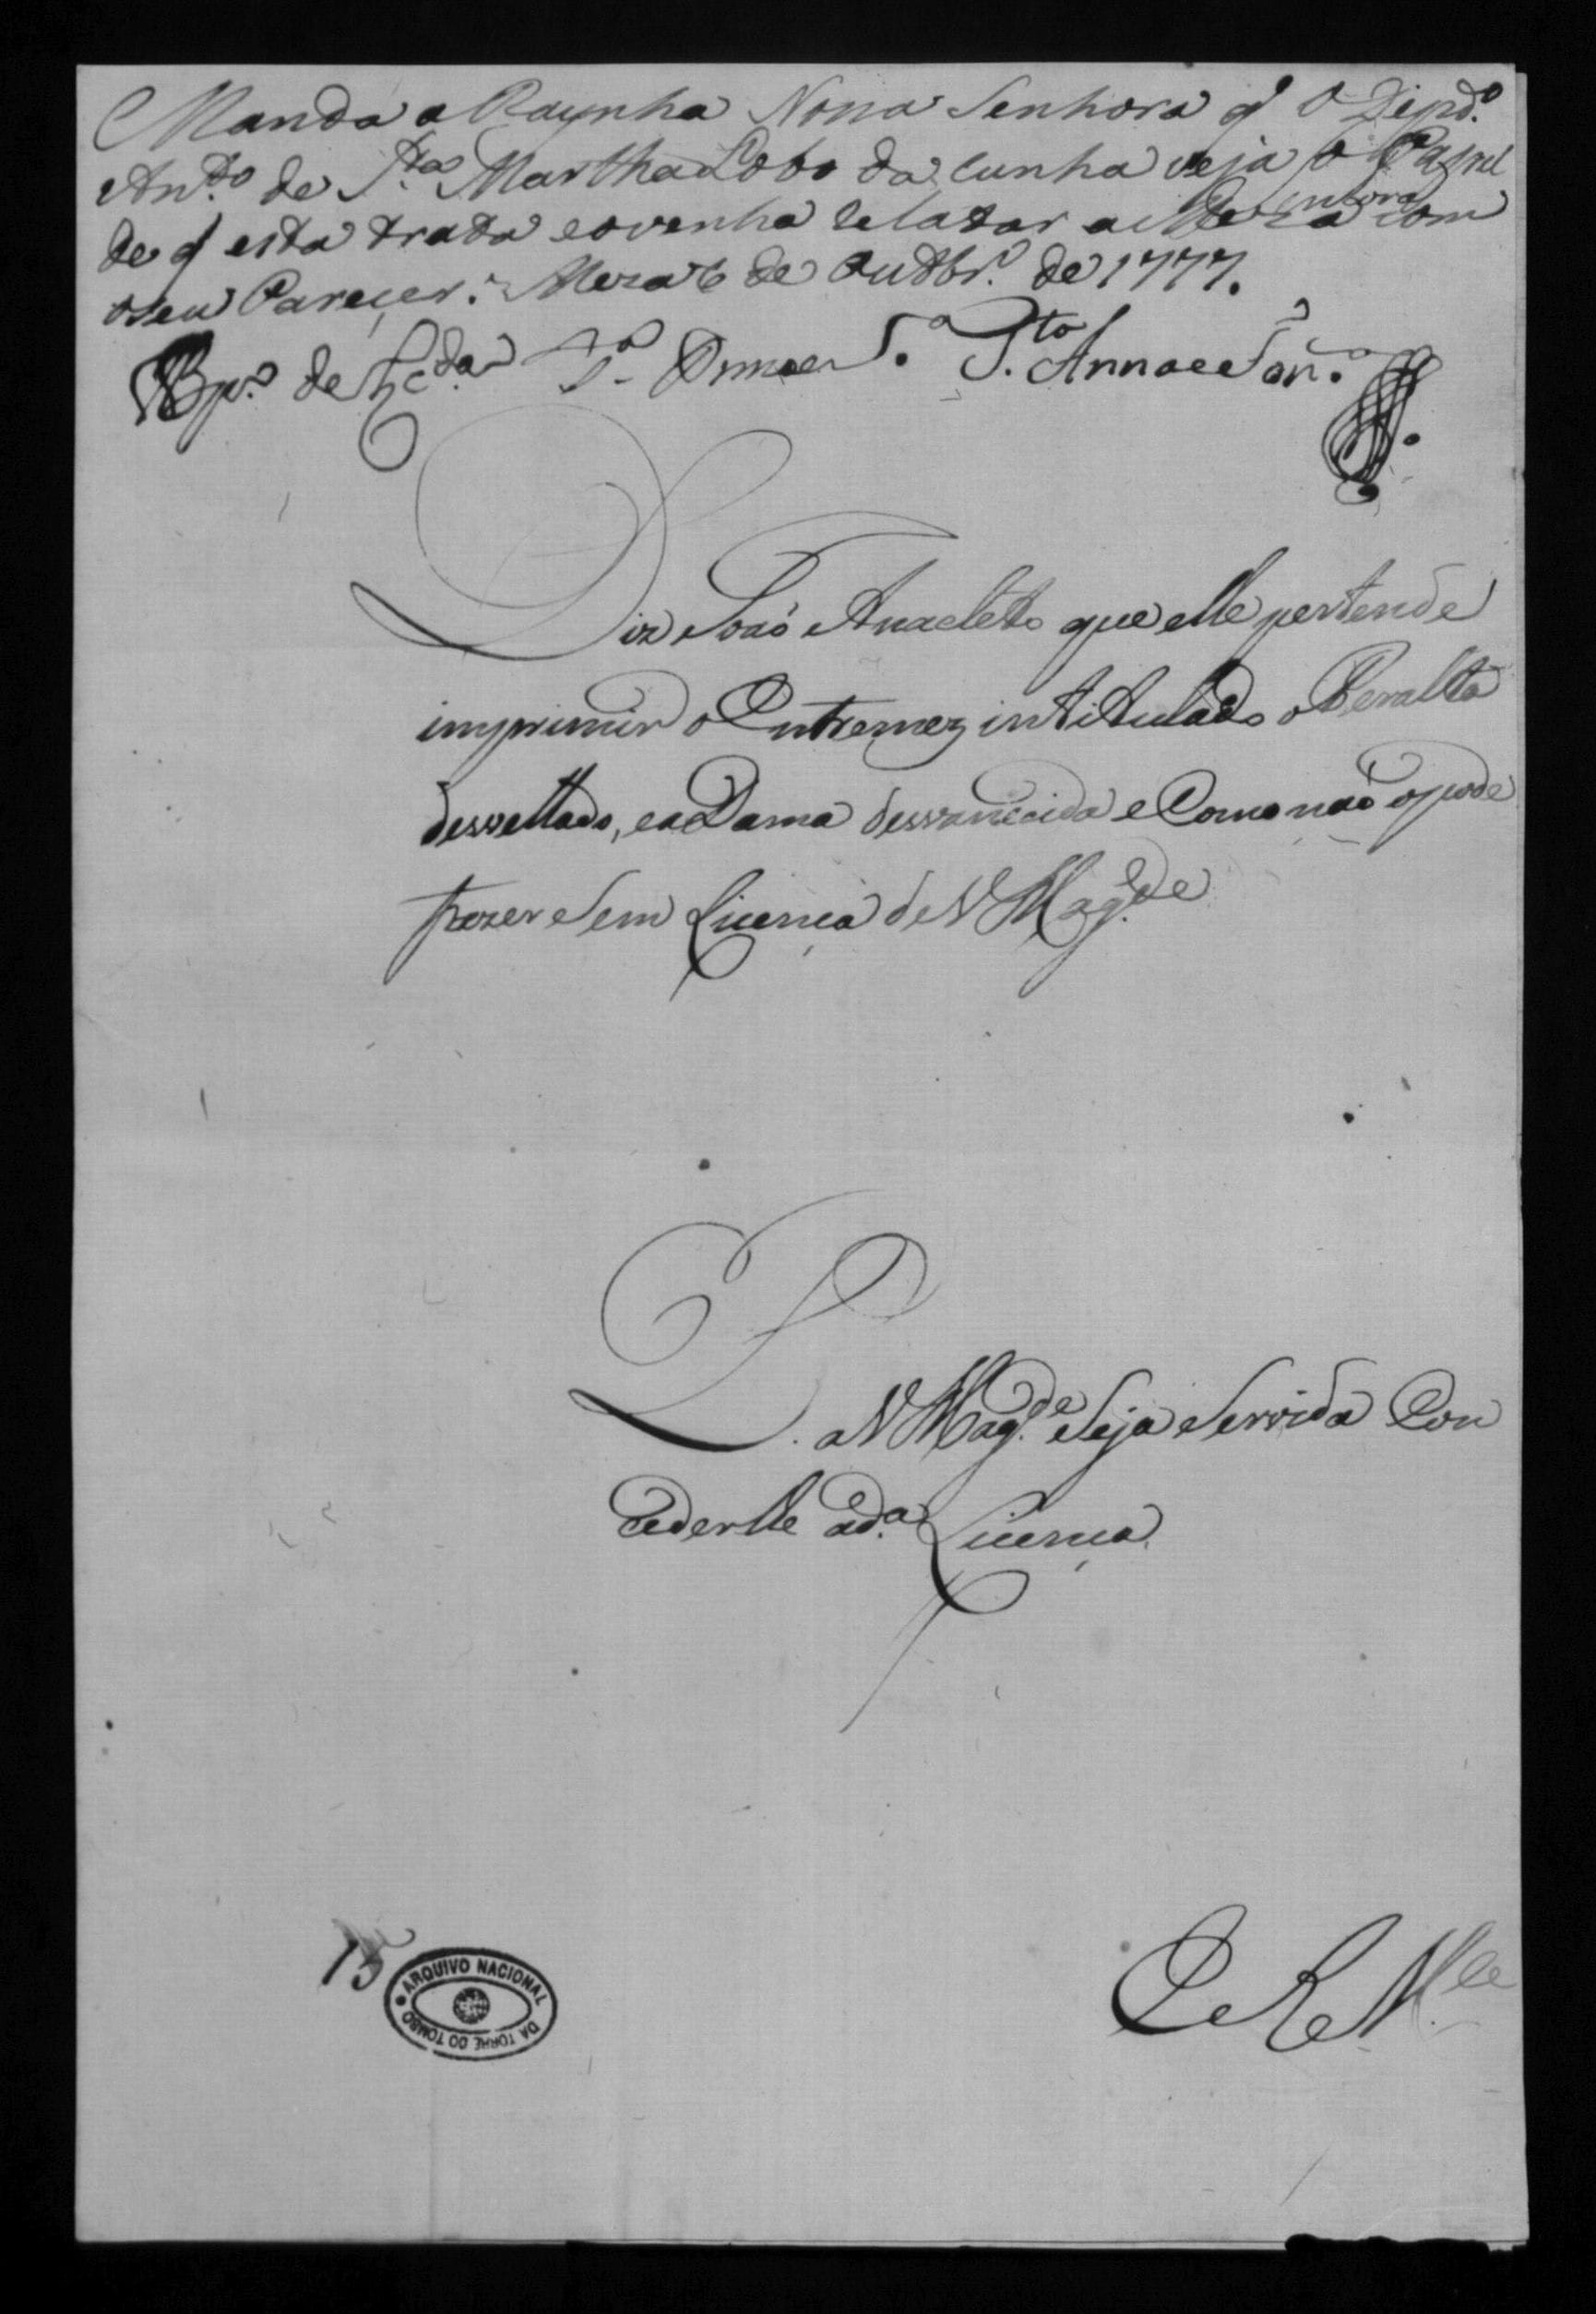 Manda a Raynha Nossa Senhora q̃ O Dipd.º
Ant.º de S.ta Martha Lobo da Cunha veja o Papel
de q̃ esta trata e o venha relatar a Meza com
o seu Parecer. Meza 6 de Outbr.º de 1777.
Bp.º de
S.to Anna e
Diz João Anacleto que elle pertende
imprimir o Entremez intitulado o Peralta
desvellado, e a Dama desvanecida e Como naó o pode
fazer Sem Licença de V Mag.de
P. a V Mag.de Seja Servida Con
cederlle a d.a Licença
E R M.ce
15
ARQUIVO NACIONAL
DA TORRE DO TOMBO